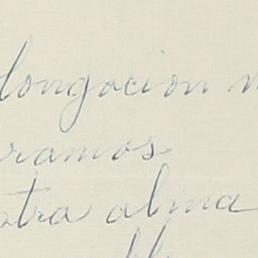 longacion
ramos
tra alma